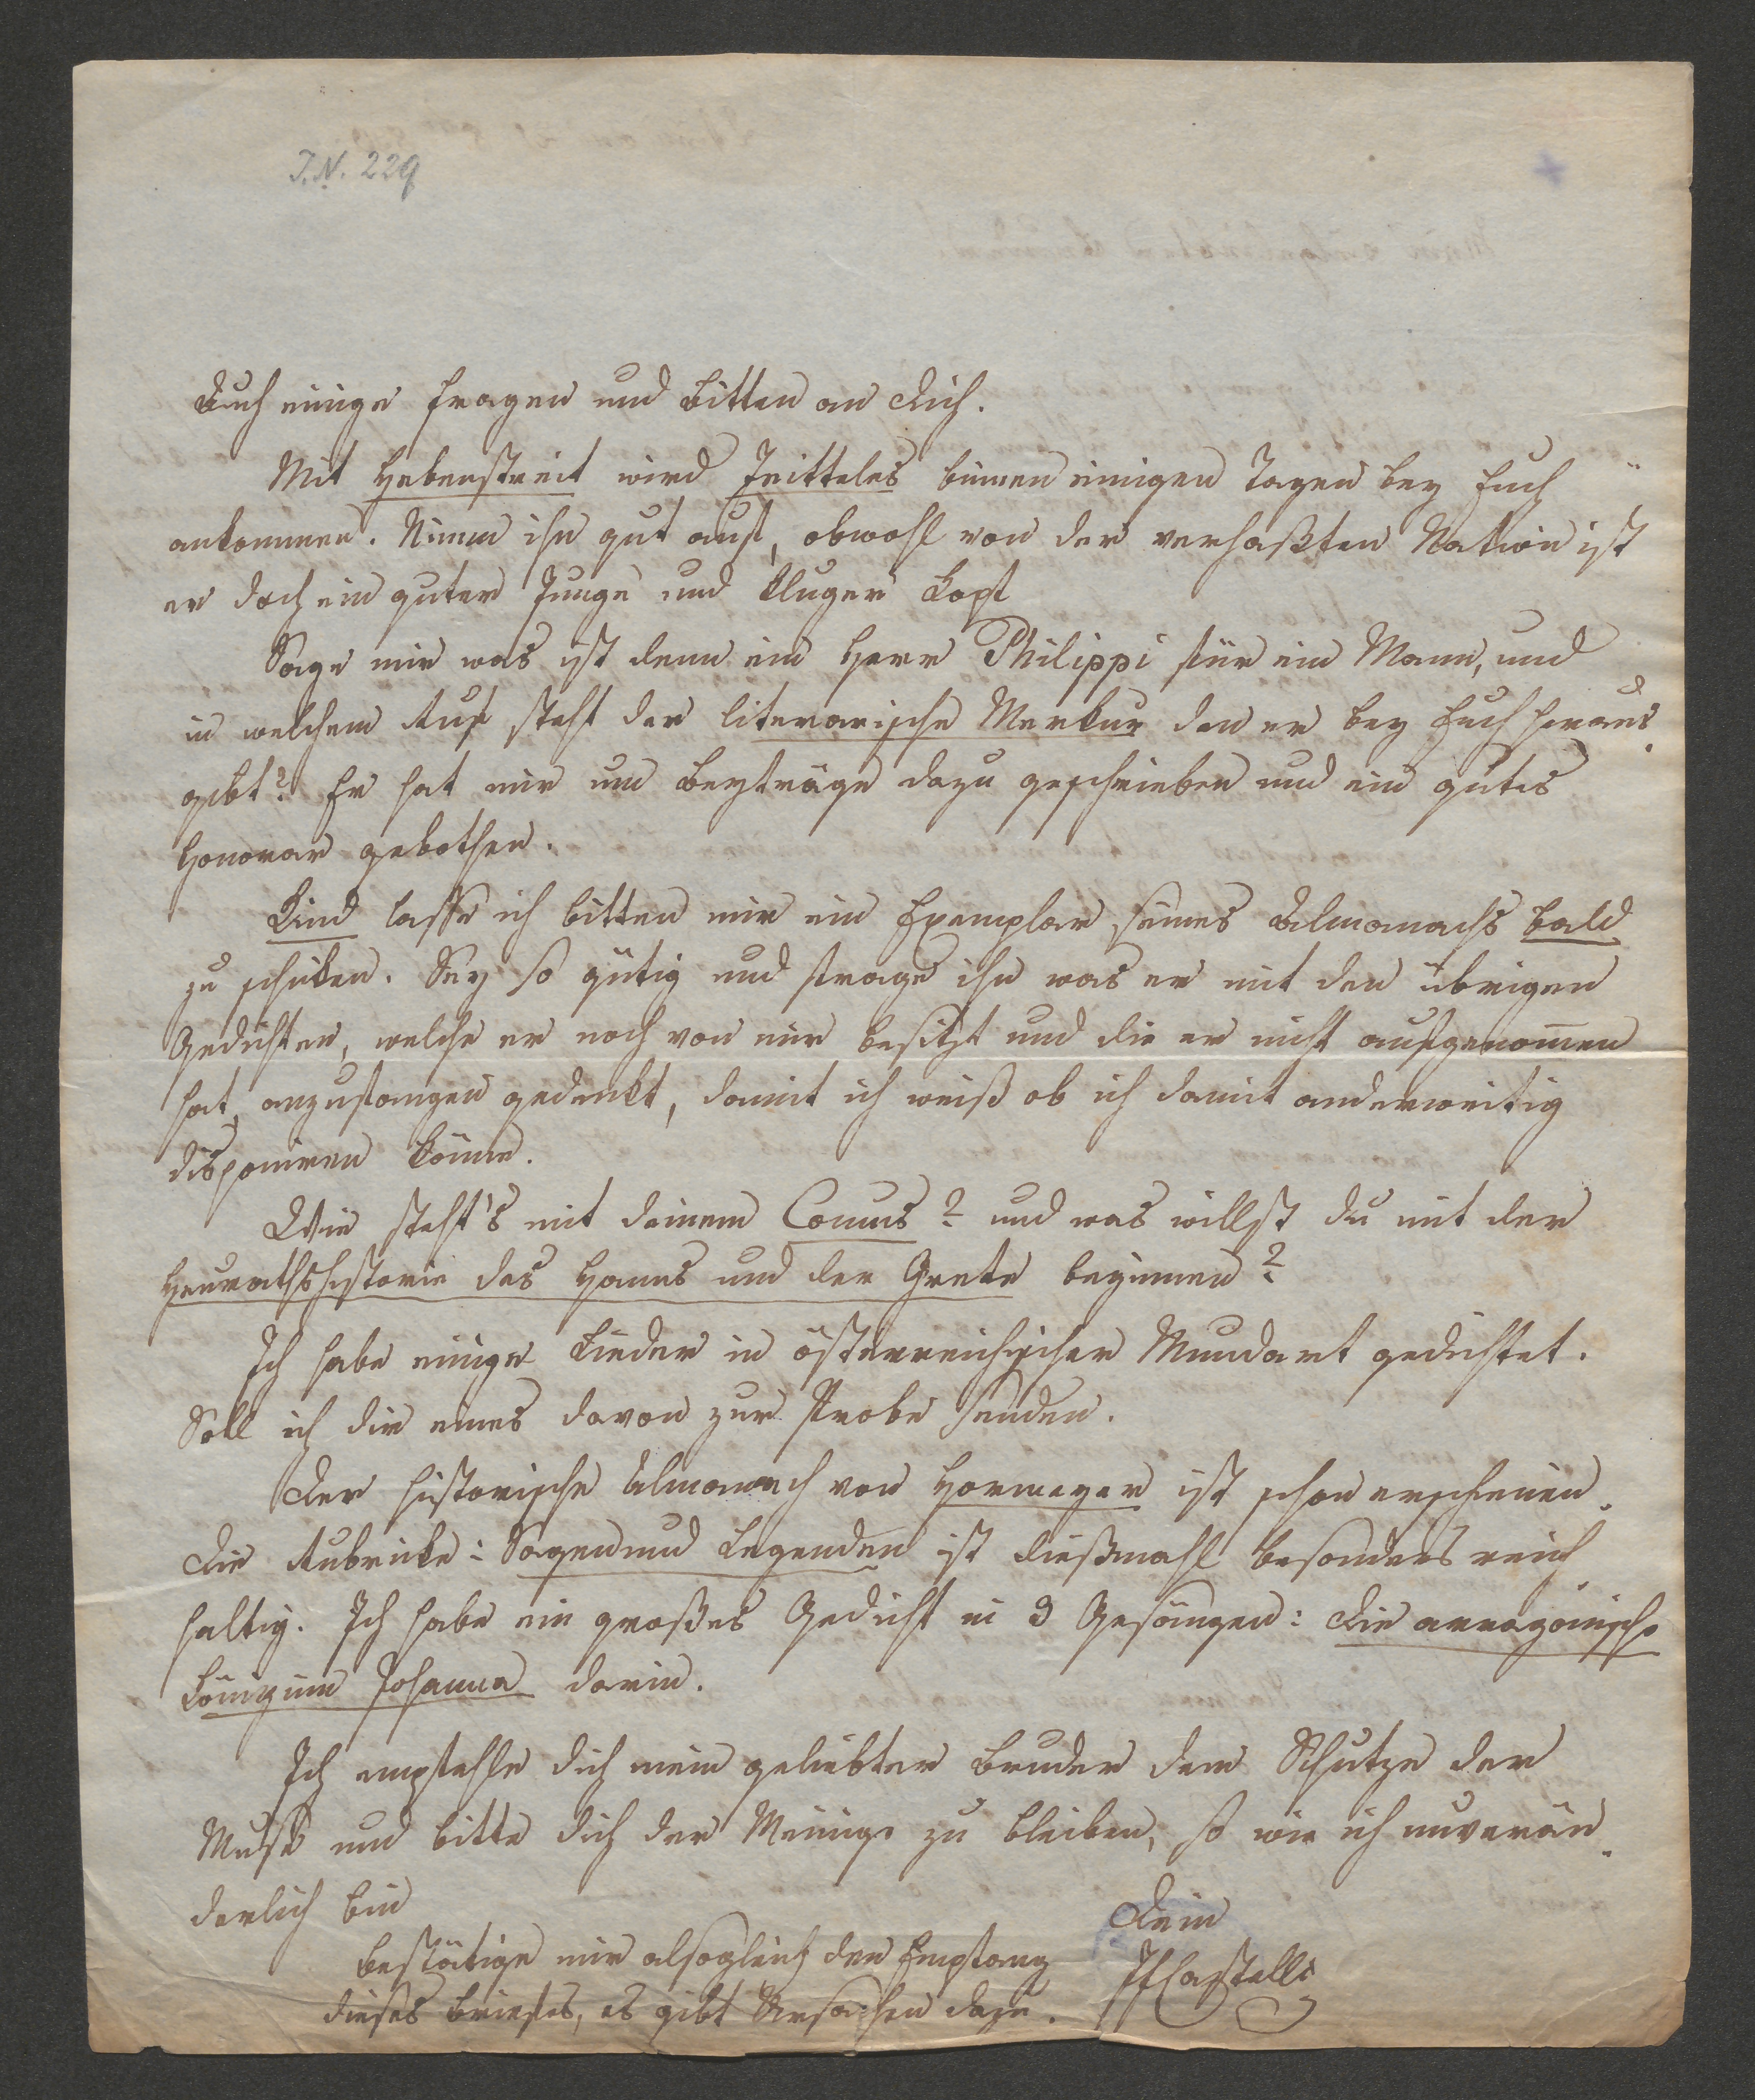 I.N. 229
Auch einige Fragen und Bitten an Dich.
Mit Hebenstreit wird Jeitteles binnen einigen Tagen bey Euch
ankommen. Nimm ihn gut auf, obwohl von der verhaßten Nation ist
er doch ein guter Junge und kluger Kopf
Sage mir was ist denn ein Herr Philippi für ein Mann, und
in welchem Ruf steht der literarische Merkur den er bey Euch heraus
gibt? Er hat mir um Beyträge dazu geschrieben und ein gutes
Honorar gebothen.
Kind lasse ich bitten mir ein Exemplar seines Almanachs bald
zu schicken. Sey so gütig und frage ihn was er mit den übrigen
Gedichten, welche er noch von mir besitzt und die er nicht aufgenom̄en
hat, anzufangen gedenkt, damit ich weiß ob ich damit anderweitig
disponiren könne.
Wie steht's mit deinem Comus? und was willst du mit der
Heurathshistorie des Hanns und der Grete beginnen?
Ich habe einige Lieder in österreichischer Mundart gedichtet.
Soll ich dir eines davon zur Probe senden.
Der historische Almanach von Hormayer ist schon erschienen.
Die Rubricke: Sagen und Legenden ist dießmahl besonders reich
haltig. Ich habe ein großes Gedicht in 3 Gesängen: Die arragonische
Königinn Johanna darin.
Ich empfehle dich mein geliebter Bruder dem Schutze der
Muse und bitte dich der Meinige zu bleiben, so wie ich unverän
derlich bin
Dein
Bestätige mir alsogleich den Empfang
JFCastelli
dieses Briefes, es gibt Ursachen dazu.